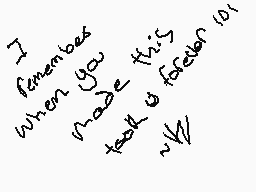 I
remember
when you
made this
took u forever :D:
~W